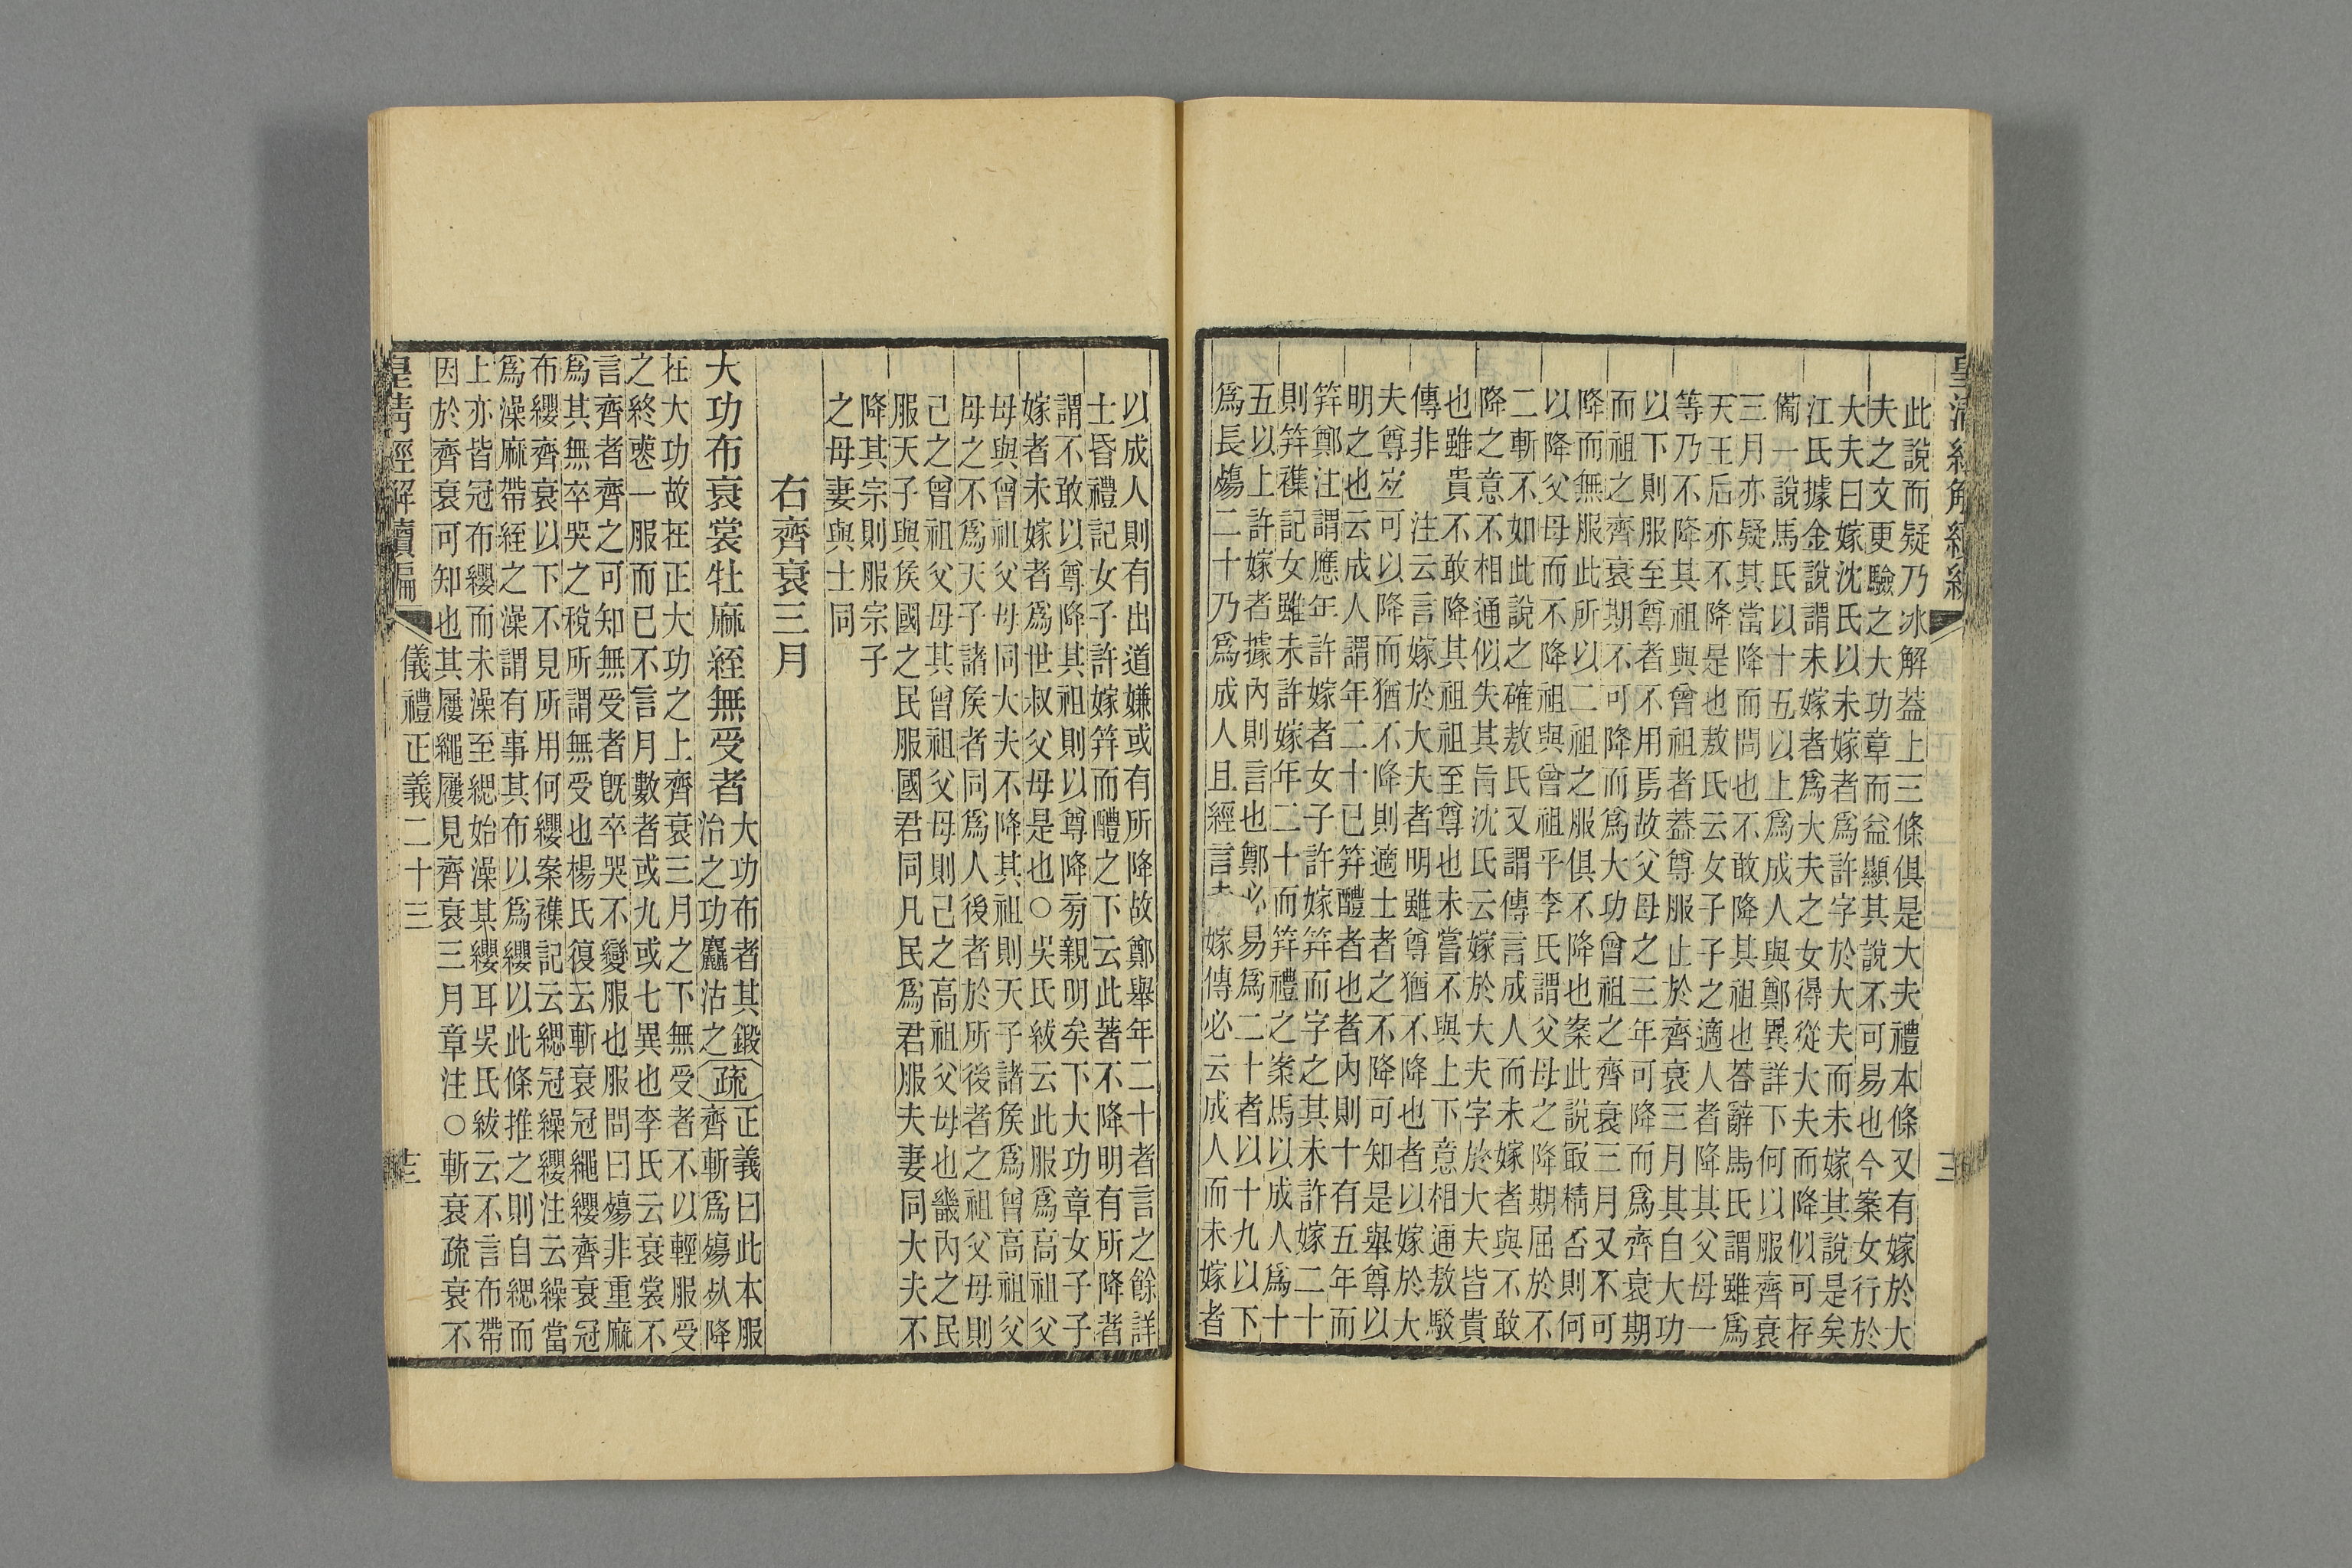 此說而疑乃冰解葢上三條俱是大夫禮本條又有嫁於大
夫之文更驗之大功章而益顯其說不可易也今案女行於
大夫曰嫁沈氏以未嫁者爲許字於大夫而未嫁其說是矣
江氏據金說謂未嫁者爲大夫之女得從大夫而降似可存
僃一說馬氏以十五以上爲成人與鄭異詳下何以服齊衰
三月亦疑其當降而問也不敢降其祖也荅辭馬氏謂雖爲
天王后亦不降是也敖氏云女子子之適人者降其父母一
等乃不降其祖與曾祖者葢尊服止於齊衰三月其自大功
以下則服至尊者不用焉故父母之三年可降而爲齊衰期
而祖之齊衰期不可降而爲大功曾祖之齊衰三月又不可
降而無服此所以二祖之服俱不降也案此說㝡精否則何
以降父母而不降祖與曾祖乎李氏謂父母之降期屈於不
二斬不如此說之確敖氏又謂傳言成人而未嫁者與不敢
降之意不相通似失其旨沈氏云嫁於大夫字於大夫皆貴
也雖貴不敢降其祖祖至尊也未嘗不與上下意相通敖駮
傳非　注云言嫁於大夫者明雖尊猶不降也者以嫁於大
夫尊𡴀可以降而猶不降則適士者之不降可知是舉尊以
明之也云成人謂年二十已筓醴者也者內則十有五年而
筓鄭注謂應年許嫁者女子許嫁筓而字之其未許嫁二十
則筓襍記女雖未許嫁年二十而筓禮之案馬以成人爲十
五以上許嫁者據內則言也鄭必易爲二十者以十九以下
爲長殤二十乃爲成人且經言未嫁傳必云成人而未嫁者
三
以成人則有出道嫌或有所降故鄭舉年二十者言之餘詳
士昏禮記女子許嫁筓而醴之下云此著不降明有所降者
謂不敢以尊降其祖則以尊降㫄親明矣下大功章女子子
嫁者未嫁者爲世叔父母是也○吳氏紱云此服爲高祖父
母與曾祖父母同大夫不降其祖則天子諸矦爲曾高祖父
母之不爲天子諸矦者同爲人後者於所後者之祖父母則
己之曾祖父母其曾祖父母則己之高祖父母也畿內之民
服天子與矦國之民服國君同凡民爲君服夫妻同大夫不
降其宗則服宗子
之母妻與士同
右齊衰三月
大功布衰裳牡麻絰無受者
大功布者其鍛
治之功麤沽之
疏
正義曰此本服
齊斬爲殤𣦸降
在大功故在正大功之上齊衰三月之下無受者不以輕服受
之終愨一服而已不言月數者或九或七異也李氏云衰裳不
言齊者齊之可知無受者旣卒哭不變服也服問曰殤非重麻
爲其無卒哭之稅所謂無受也楊氏復云斬衰冠繩纓齊衰冠
布纓齊衰以下不見所用何纓案襍記云緦冠繰纓注云繰當
爲澡麻帶絰之澡謂有事其布以爲纓以此條推之則自緦而
上亦皆冠布纓而未澡至緦始澡其纓耳吳氏紱云不言布帶
因於齊衰可知也其屨繩屨見齊衰三月章注○斬衰疏衰不
皇淸經解續編
儀禮正義二十三